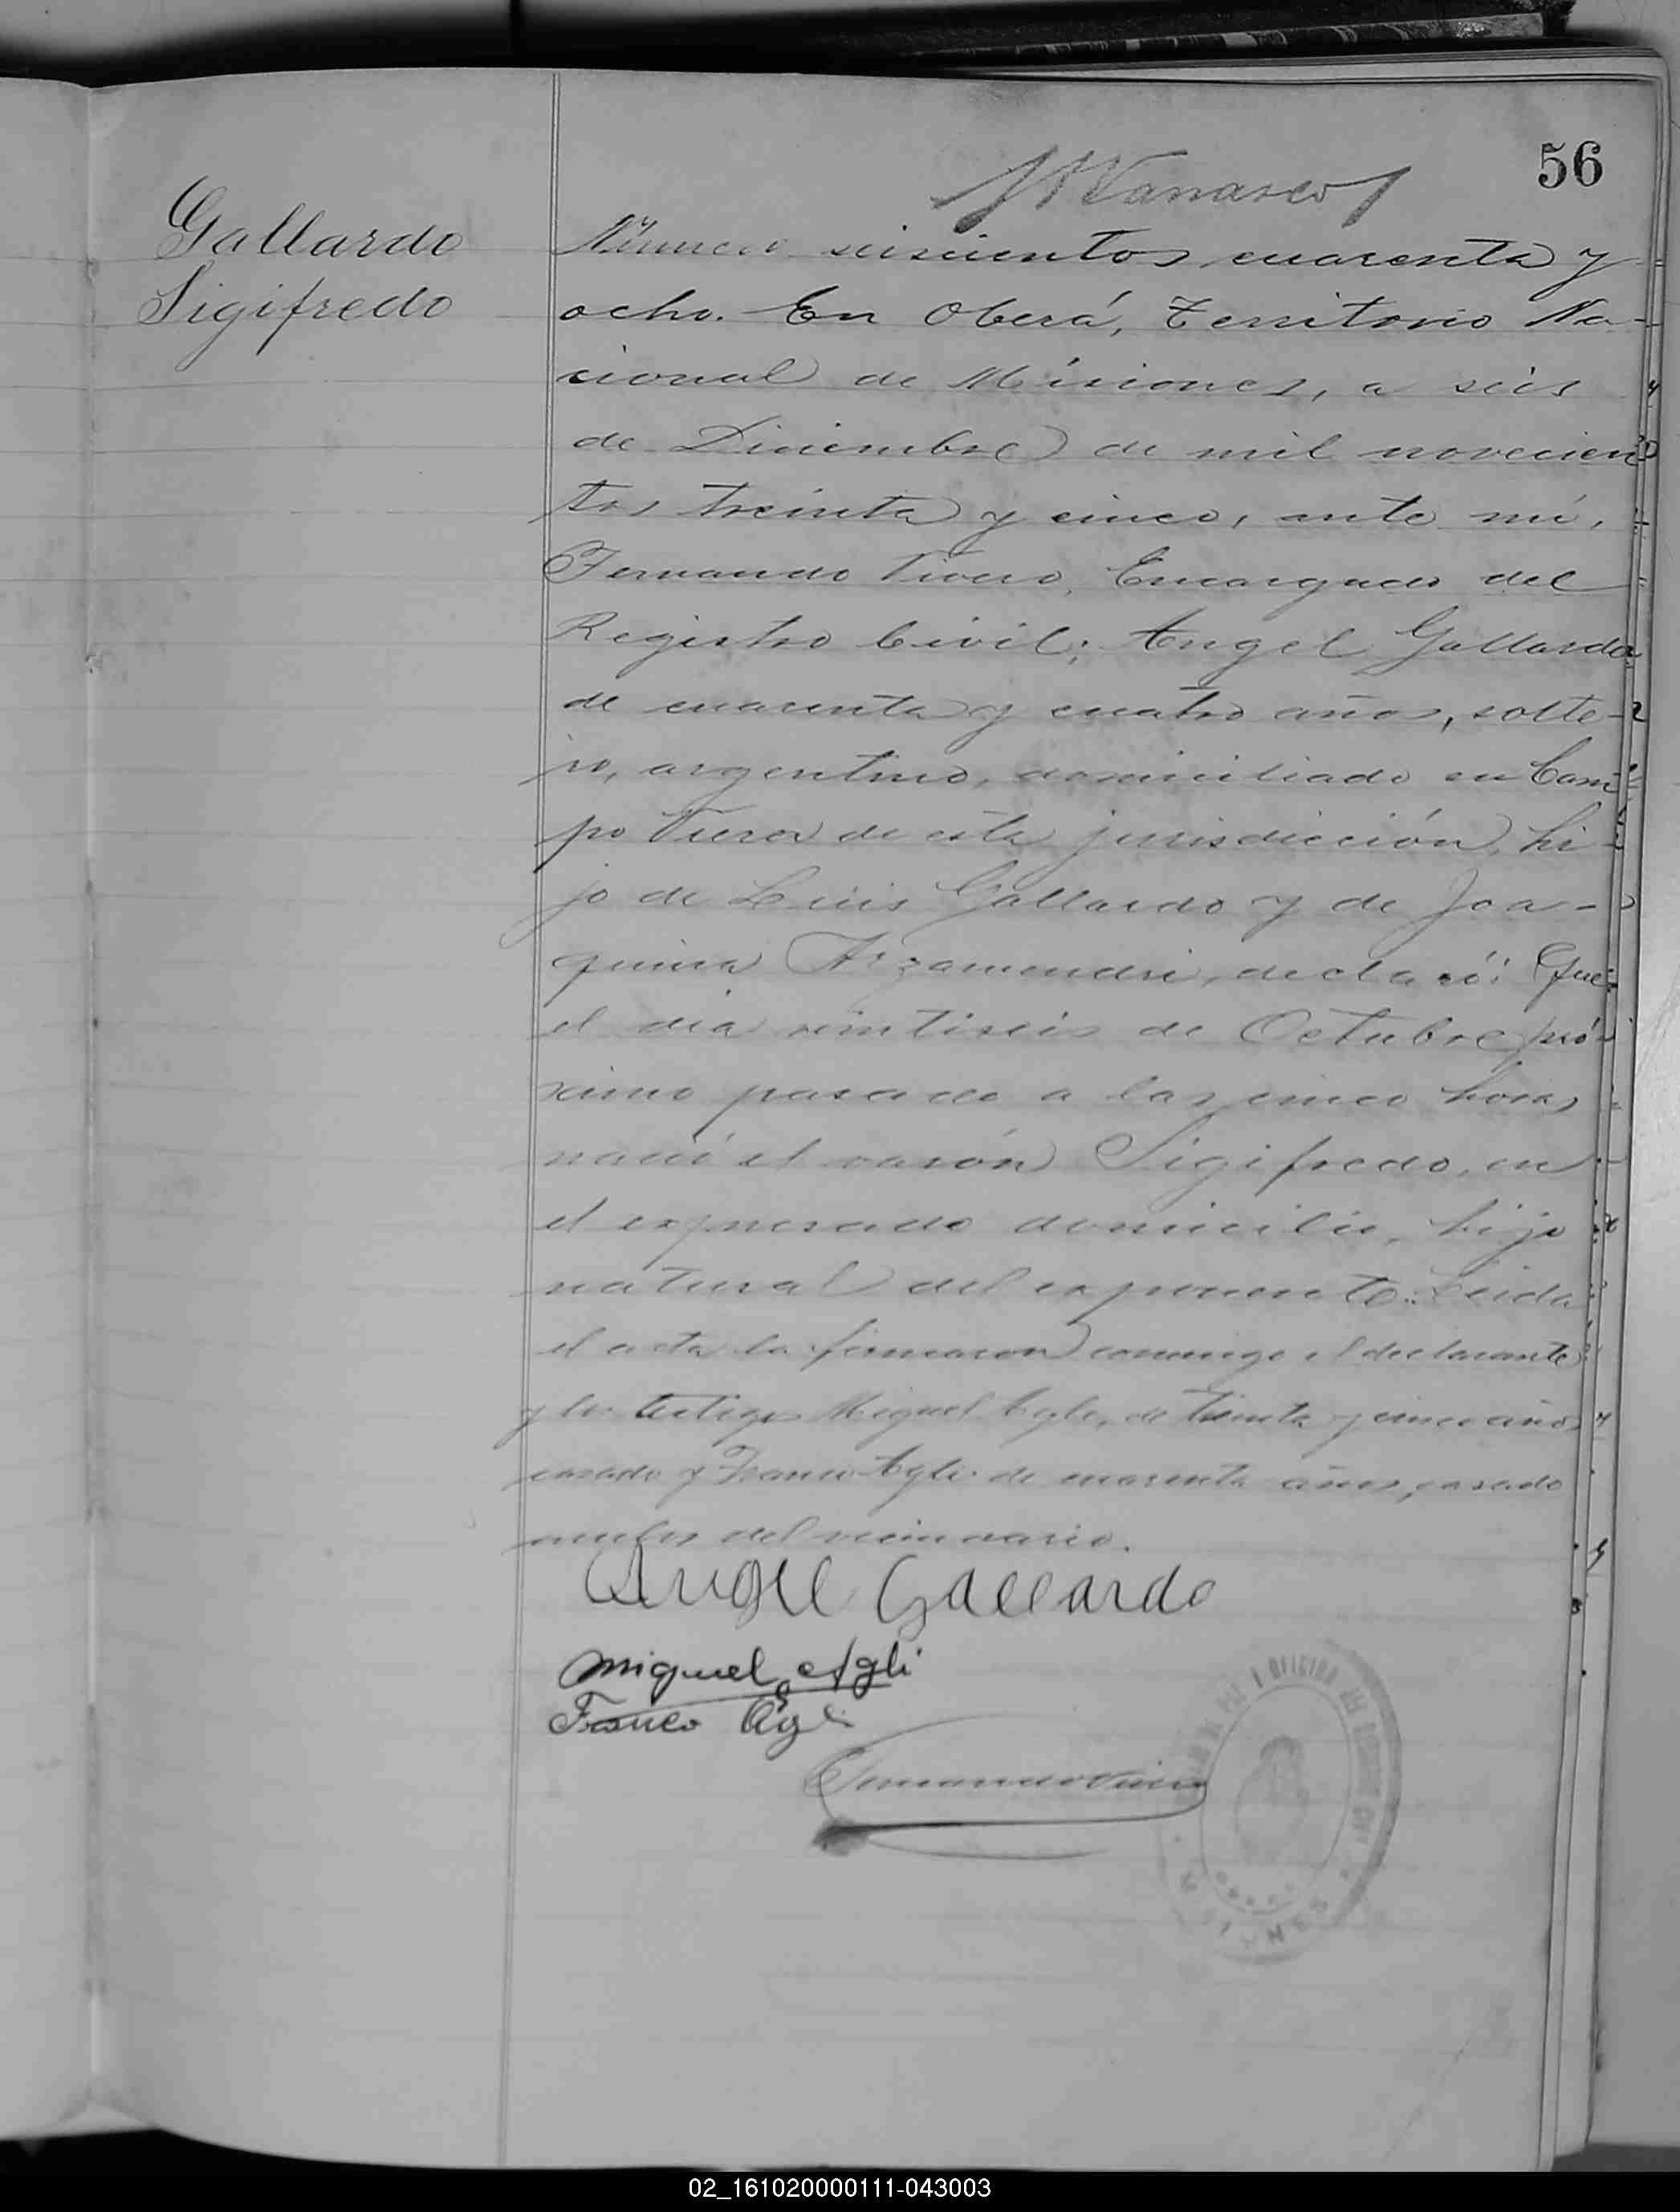 56
Gallardo
Sigifredo
Número seiscientos cuarenta y
ocho. En Oberá, Territorio Na-
cional de Misiones, a seis
de Diciembre de mil novecien
tos treinta y cinco, ante mí,
Fernando Encargado del
Registro Civil; Angel Gallardo
de cuarenta y cuatro años, solte-
ro, argentino, domiciliado en Cam
po Viera de esta jurisdicción, hi-
jo de Luis Gallardo y de Joa-
quina Arzamendi, declaró: Que
el día veintiseis de Octubre pró-
ximo pasado a las cinco horas
nació el varón Sigifredo, en
el expresado domicilio, hijo
natural del exponente. Leida
el acta la firmaron conmigo el declarante
y los testigos Miguel Agli, de treinta y cinco años
casado y Franco Agli de cuarenta años, casado
ambos del vecindario.
Angel Gallardo
Miguel Agli
Franco Agli
Fernando
OFICINA
02_161020000111-043003